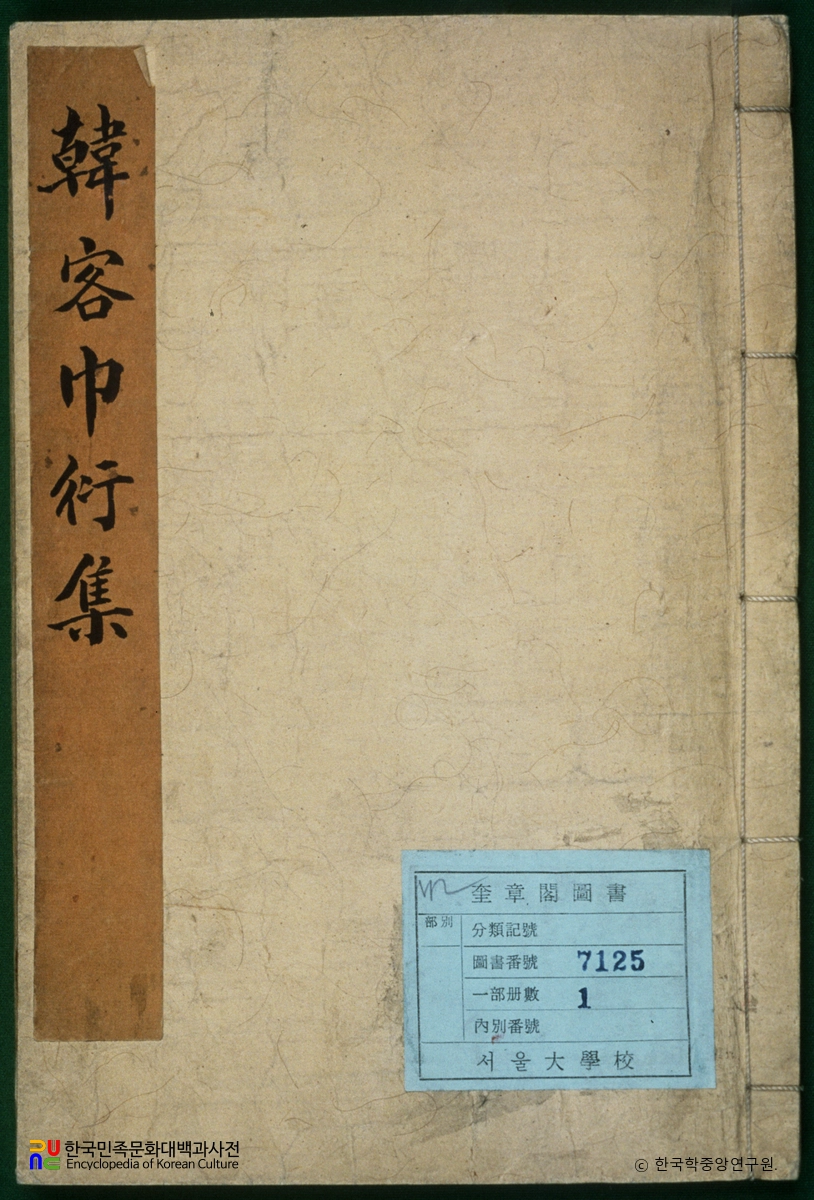 韓客巾衍集
奎章閣圖書
部別
分類記號
圖書番號 7125
一部册數 1
內別番號
서울大學校
한국민족문화대백과사전
Encyclopedia of Korean Culture
© 한국학중앙연구원.